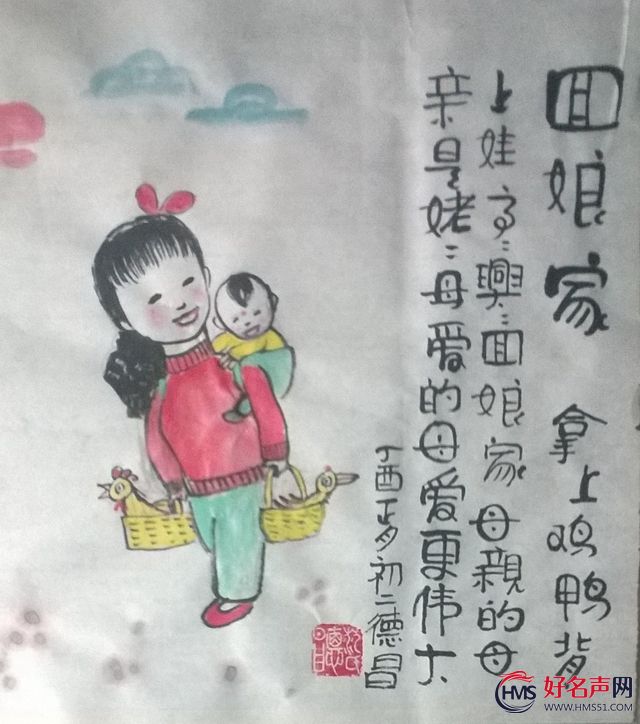 囬娘家 拿上鸡鸭背
上娃高:興:囬娘家母親的母
亲是姥:母爱的母爱更伟大
丁酉正月初二德昌
好名声网
HMS
WWW.HMS51.COM